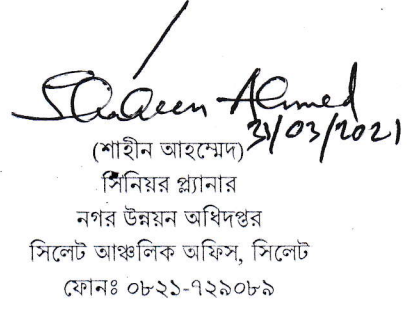 Shaheen Ahmed
31/03/2021
(শাহীন আহম্মেদ)
সিনিয়র প্ল্যানার
নগর উন্নয়ন অধিদপ্তর
সিলেট আঞ্চলিক অফিস, সিলেট
ফোনঃ ০৮২১-৭২৯০৮৯